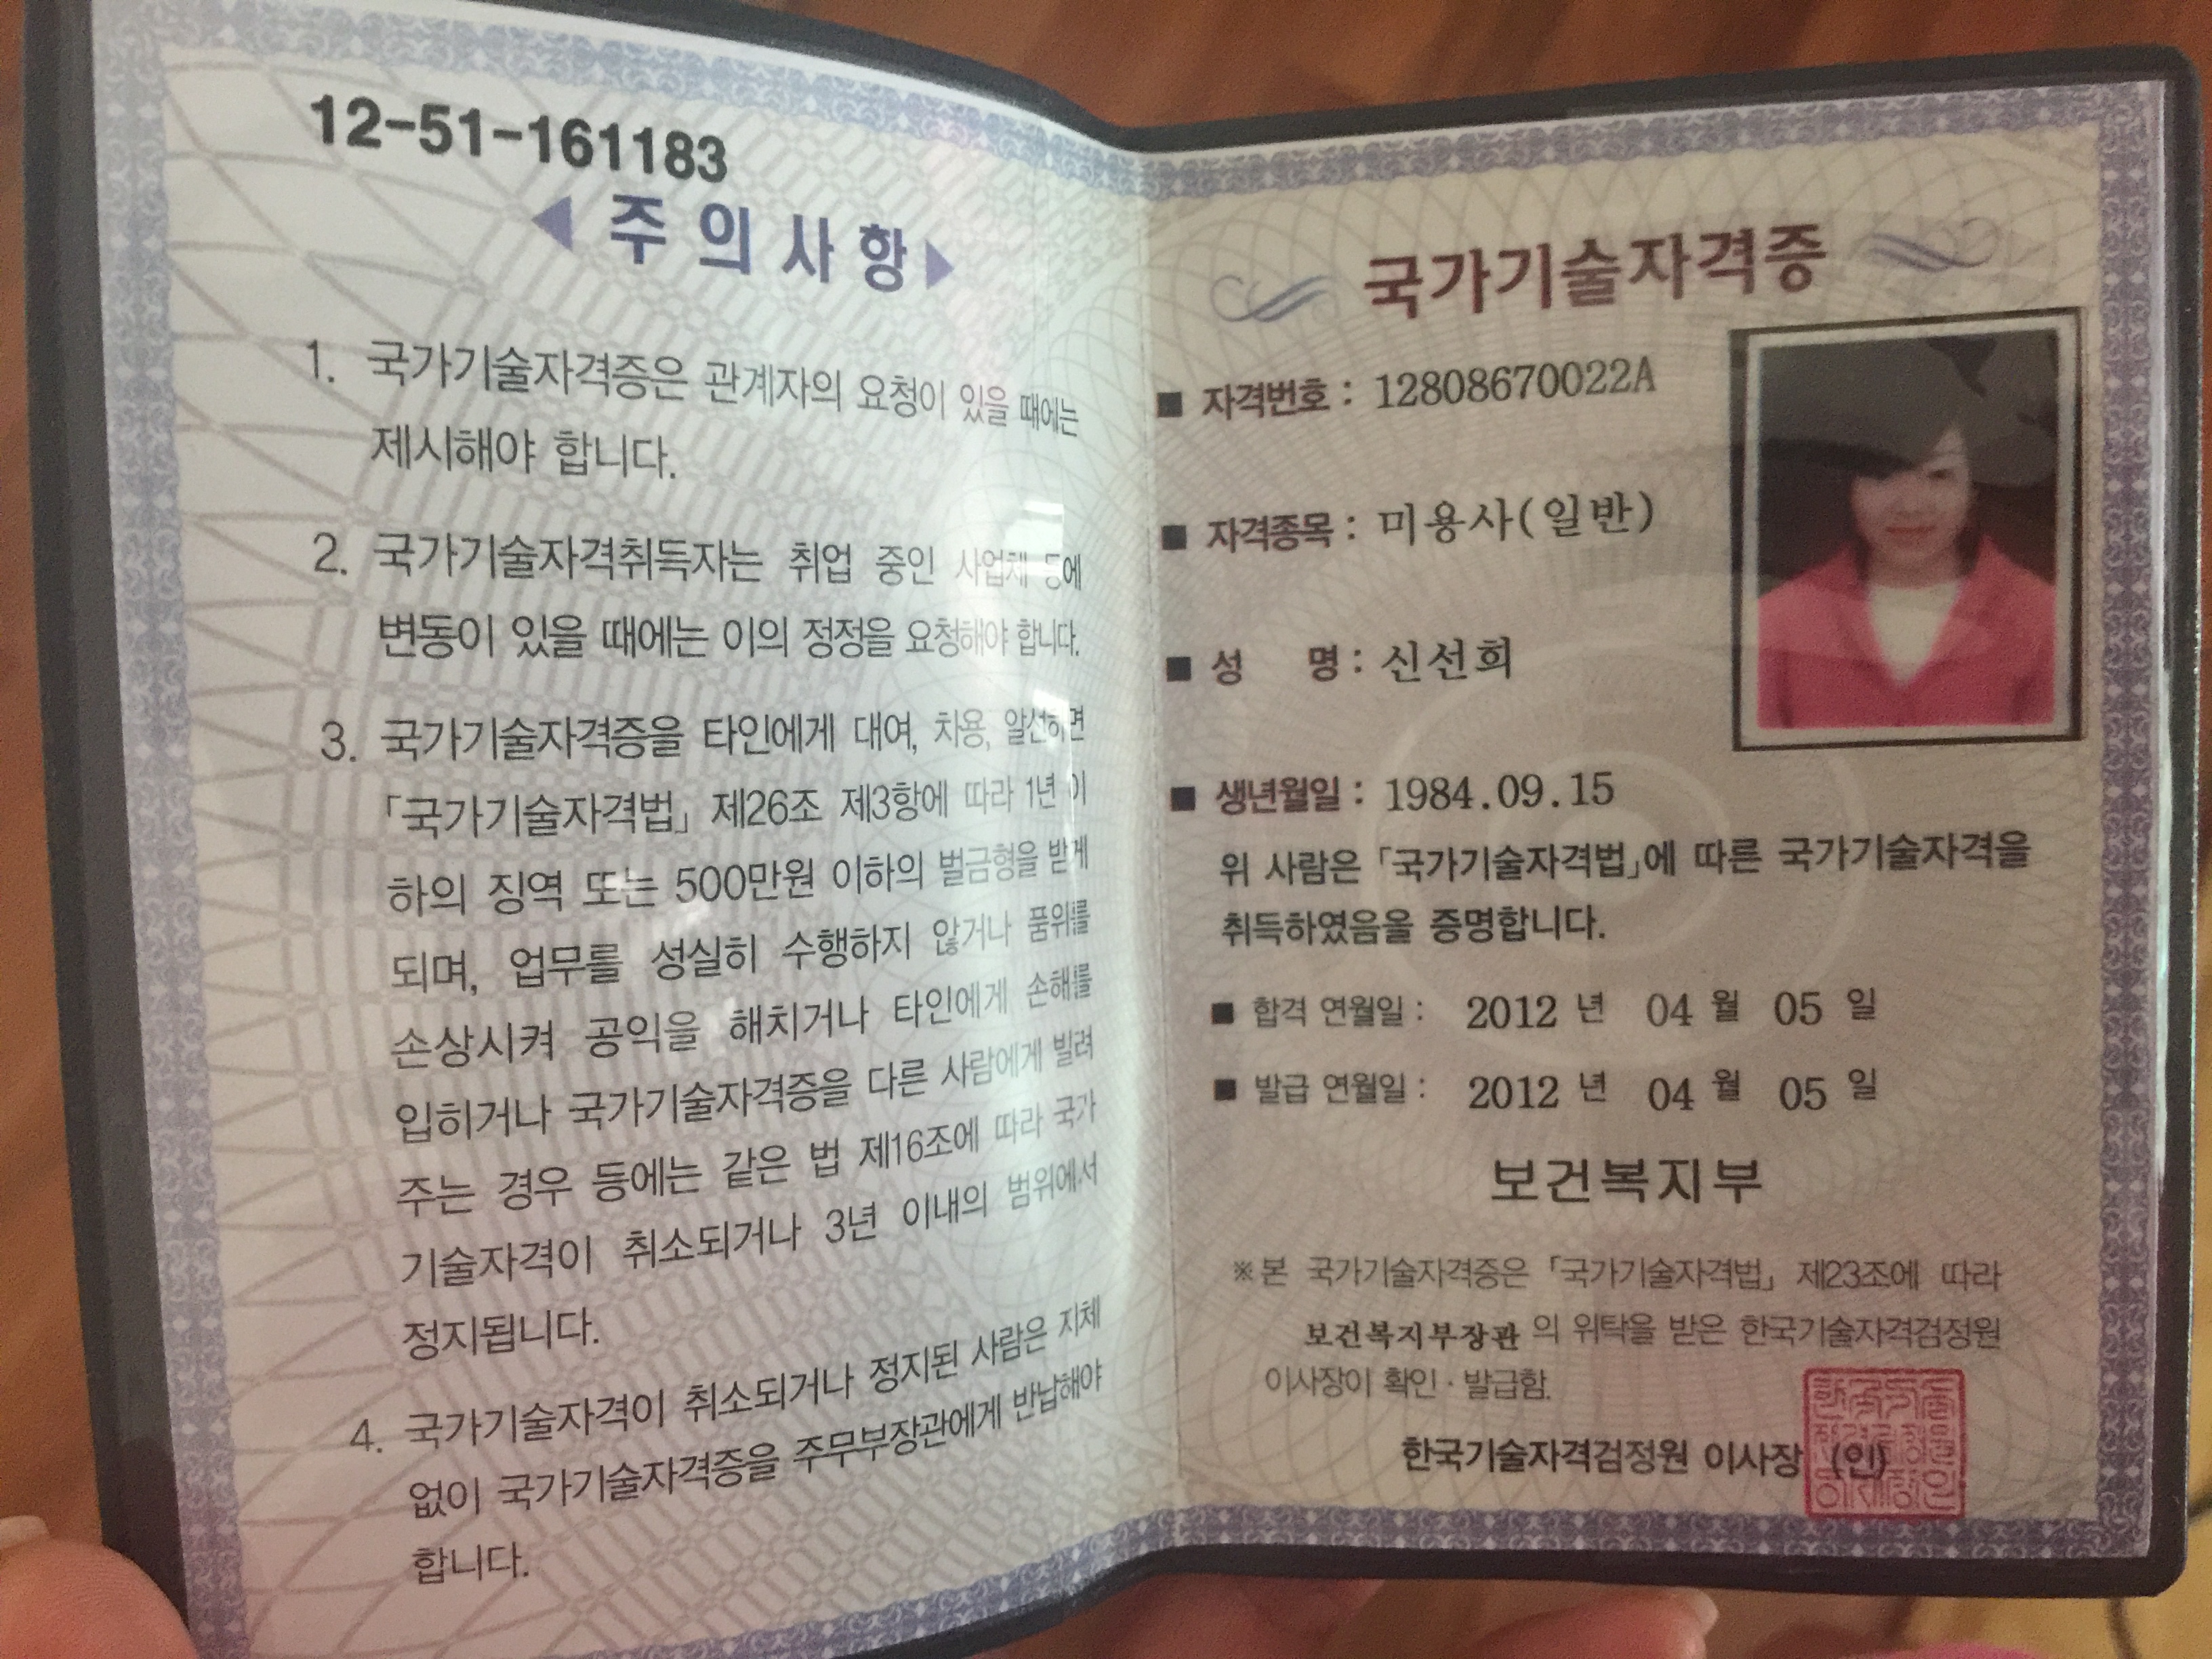 12-51-161183
◀ 주의사항 ▶
1. 국가기술자격증은 관계자의 요청이 있을 때에는
제시해야 합니다.
2. 국가기술자격취득자는 취업 중인 사업체 등에
변동이 있을 때에는 이의 정정을 요청해야 합니다.
3. 국가기술자격증을 타인에게 대여, 차용, 알선하면
「국가기술자격법」 제26조 제3항에 따라 1년 이
하의 징역 또는 500만원 이하의 벌금형을 받게
되며, 업무를 성실히 수행하지 않거나 품위를
손상시켜 공익을 해치거나 타인에게 손해를
입히거나 국가기술자격증을 다른 사람에게 빌려
주는 경우 등에는 같은 법 제16조에 따라 국가
기술자격이 취소되거나 3년 이내의 범위에서
정지됩니다.
4. 국가기술자격이 취소되거나 정지된 사람은 지체
없이 국가기술자격증을 주무부장관에게 반납해야
합니다.
국가기술자격증
■ 자격번호 : 12808670022A
■ 자격종목 : 미용사(일반)
■ 성 명 : 신선희
■ 생년월일 : 1984.09.15
위 사람은 「국가기술자격법」에 따른 국가기술자격을
취득하였음을 증명합니다.
■ 합격 연월일 : 2012 년 04 월 05 일
■ 발급 연월일 : 2012 년 04 월 05 일
보건복지부
※본 국가기술자격증은 「국가기술자격법」 제23조에 따라
보건복지부장관 의 위탁을 받은 한국기술자격검정원
이사장이 확인·발급함.
한국기술자격검정원 이사장 (인)